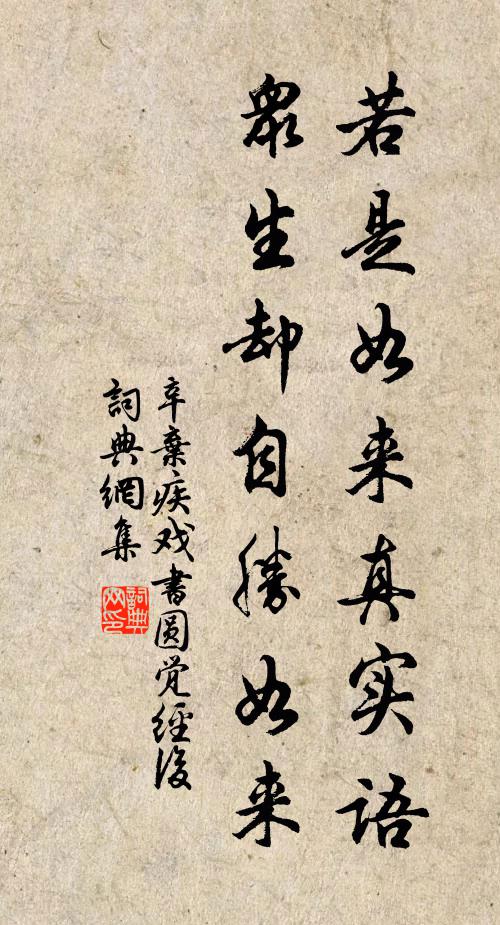 若是如来真实语
眾生却自勝如来
辛棄疾戏書圆覚經後
詞典網集
詞典
网印